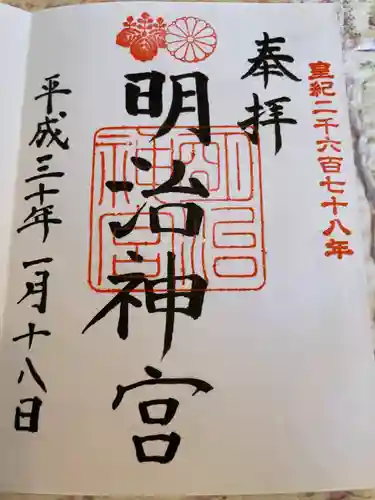 皇紀二千六百七十八年
奉拝
明治神宮
明治神宮
平成三十年一月十八日